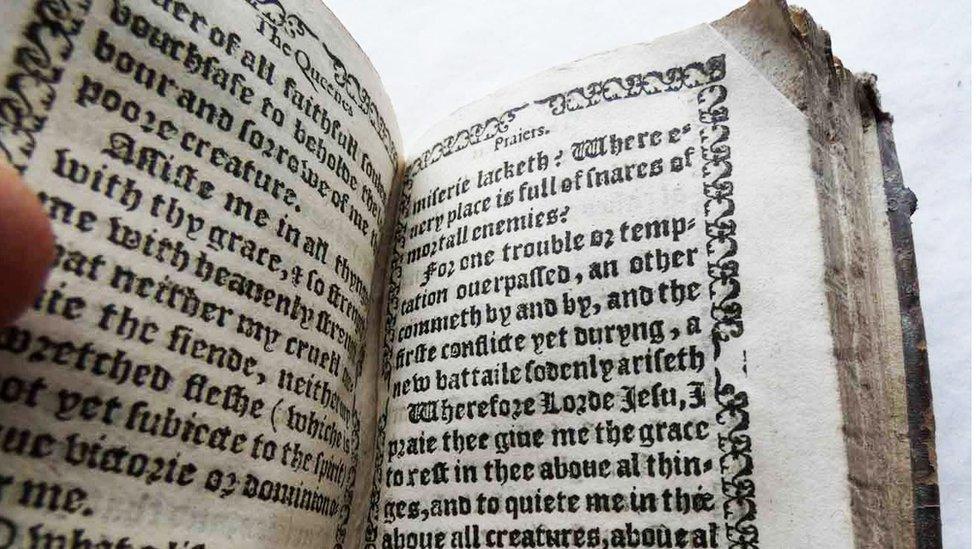 The Queenes
uer of all faithfull soules
vouchsafe to beholde the
bour and sorrowe of me
poore creature.
Assiste me in all
with thy grace, & so
me with heauenly
that neither my cruell
the fiende, neither
wretched fleshe (whiche is
not yet subiecte to the spirit
victorie or dominion
me.
what
Praiers.
miserie lacketh? Where e-
uery place is full of snares of
mortall enemies?
For one trouble or temp-
tation ouerpassed, an other
commeth by and by, and the
firste conflicte yet duryng, a
new battaile sodenly ariseth
Wherefore Lorde Jesu, I
praie thee giue me the grace
to rest in thee aboue al thin-
ges, and to quiete me in thee
aboue all creatures, aboue al